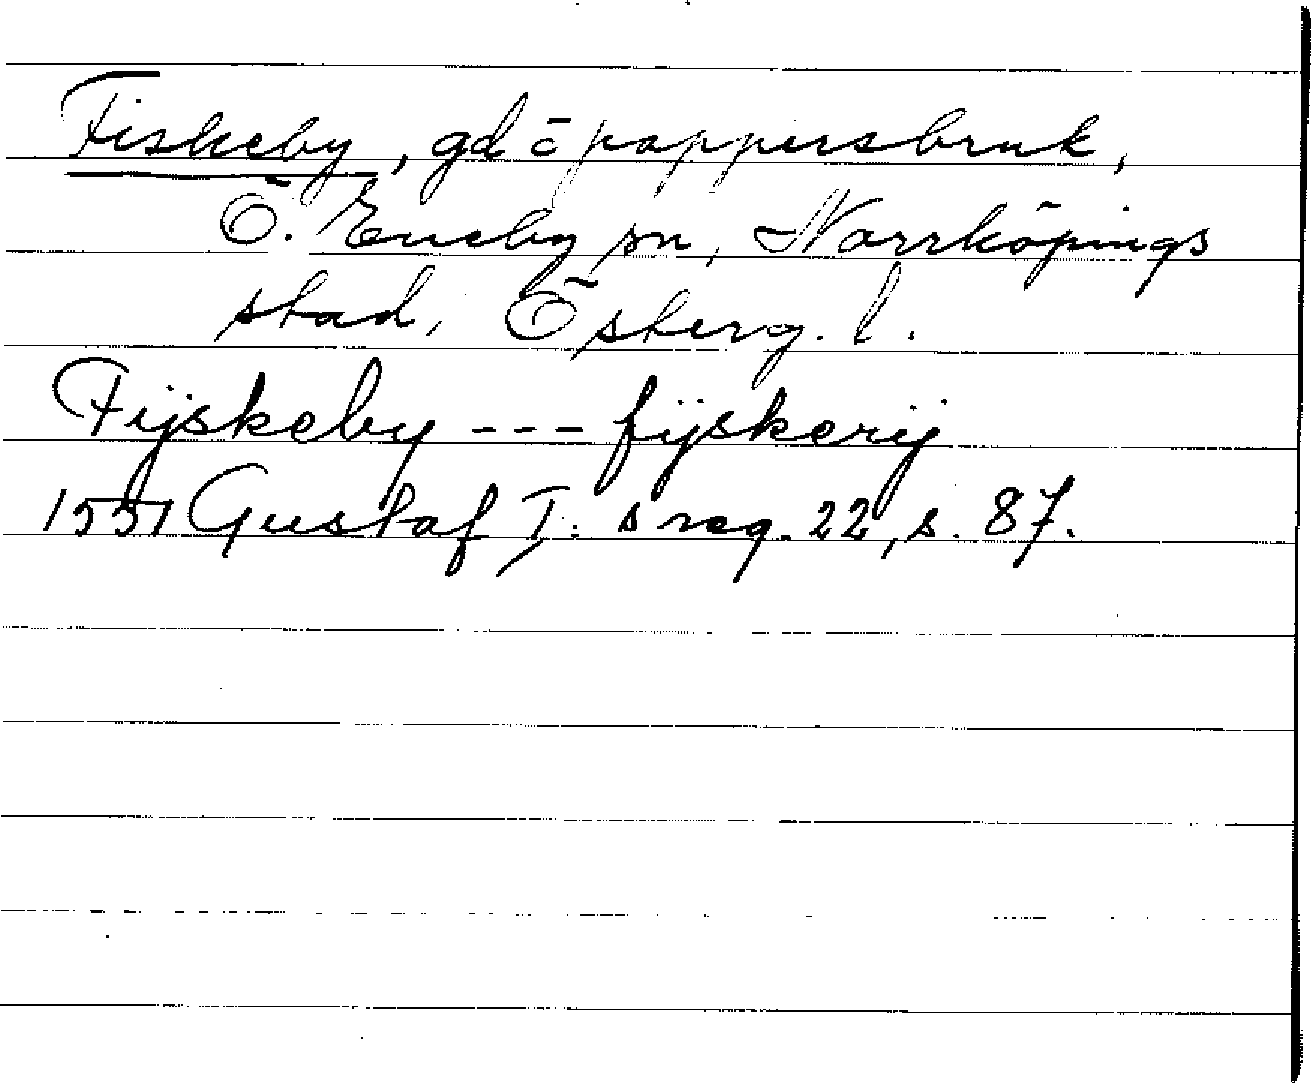 Fiskeby, gd o pappersbruk,
Ö. Eneby sn, Norrköpings
stad, Östergg. l.
Fijskeby --- fijskerij
1551 Gustaf I:s reg. 22, s. 87.